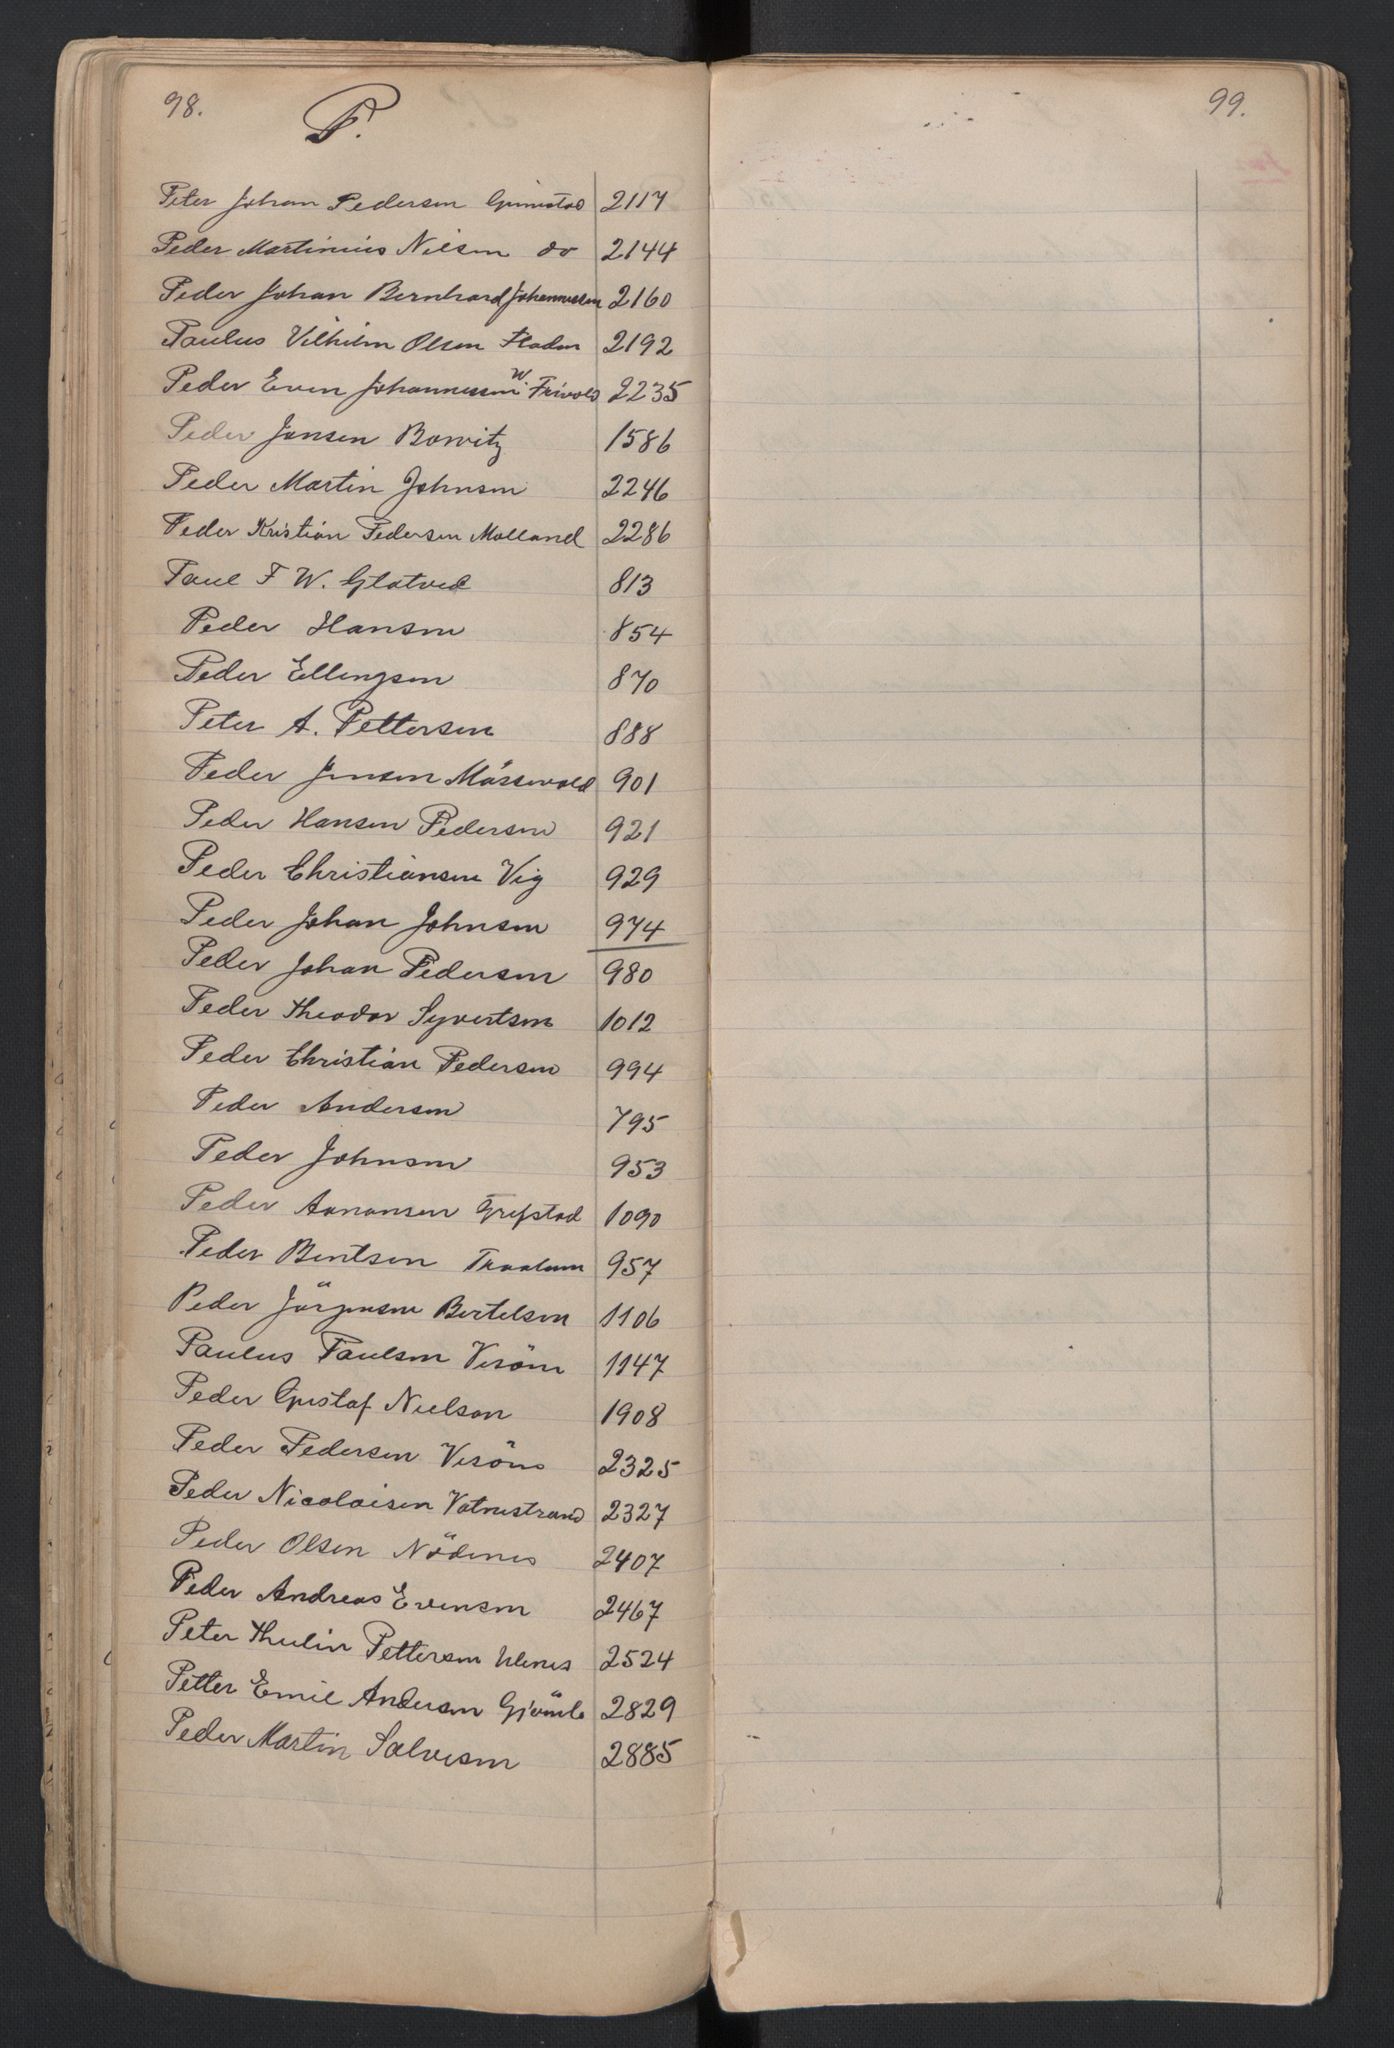 98.
P.
Peter Johan Pedersen Grimstad 2117
Peder Martinius Nilsen do 2144
Peder Johan Bernhard Johannessen 2160
Paulus Vilhilm Olsen 2192
Peder Even Johannessen W. Frivold 2235
Peder Jensen Bowitz 1586
Peder Martin Johnsen 2246
Peder Kristian Pedersen Molland 2286
Paul F W. Glatved 813
Peder Hansen 854
Peder Ellingsen 870
Peter A. Pettersen 888
Peder Jensen Måssevold 901
Peder Hansen Pedersen 921
Peder Christiansen Vig 929
Peder Johan Johnsen 974
Peder Johan Pedersen 980
Peder Theodor Syvertsen 1012
Peder Christian Pedersen 994
Peder Andersen 795
Peder Johnsen 953
Peder Aanonsen Grefstad 1090
Peder Bentsen 957
Peder Jörgensen Bertelsen 1106
Paulus Paulsen Vesöen 1147
Peder Gustaf Nielsen 1908
Peder Pedersen Vesöen 2325
Peder Nicolaisen Vatnestrand 2327
Peder Olsen Nödenes 2407
Peder Andreas Evensen 2467
Peter Thulin Pettersen Ulenes 2524
Petter Emil Andersen Gjömle 2829
Peder Martin Salvesen 2885
99.